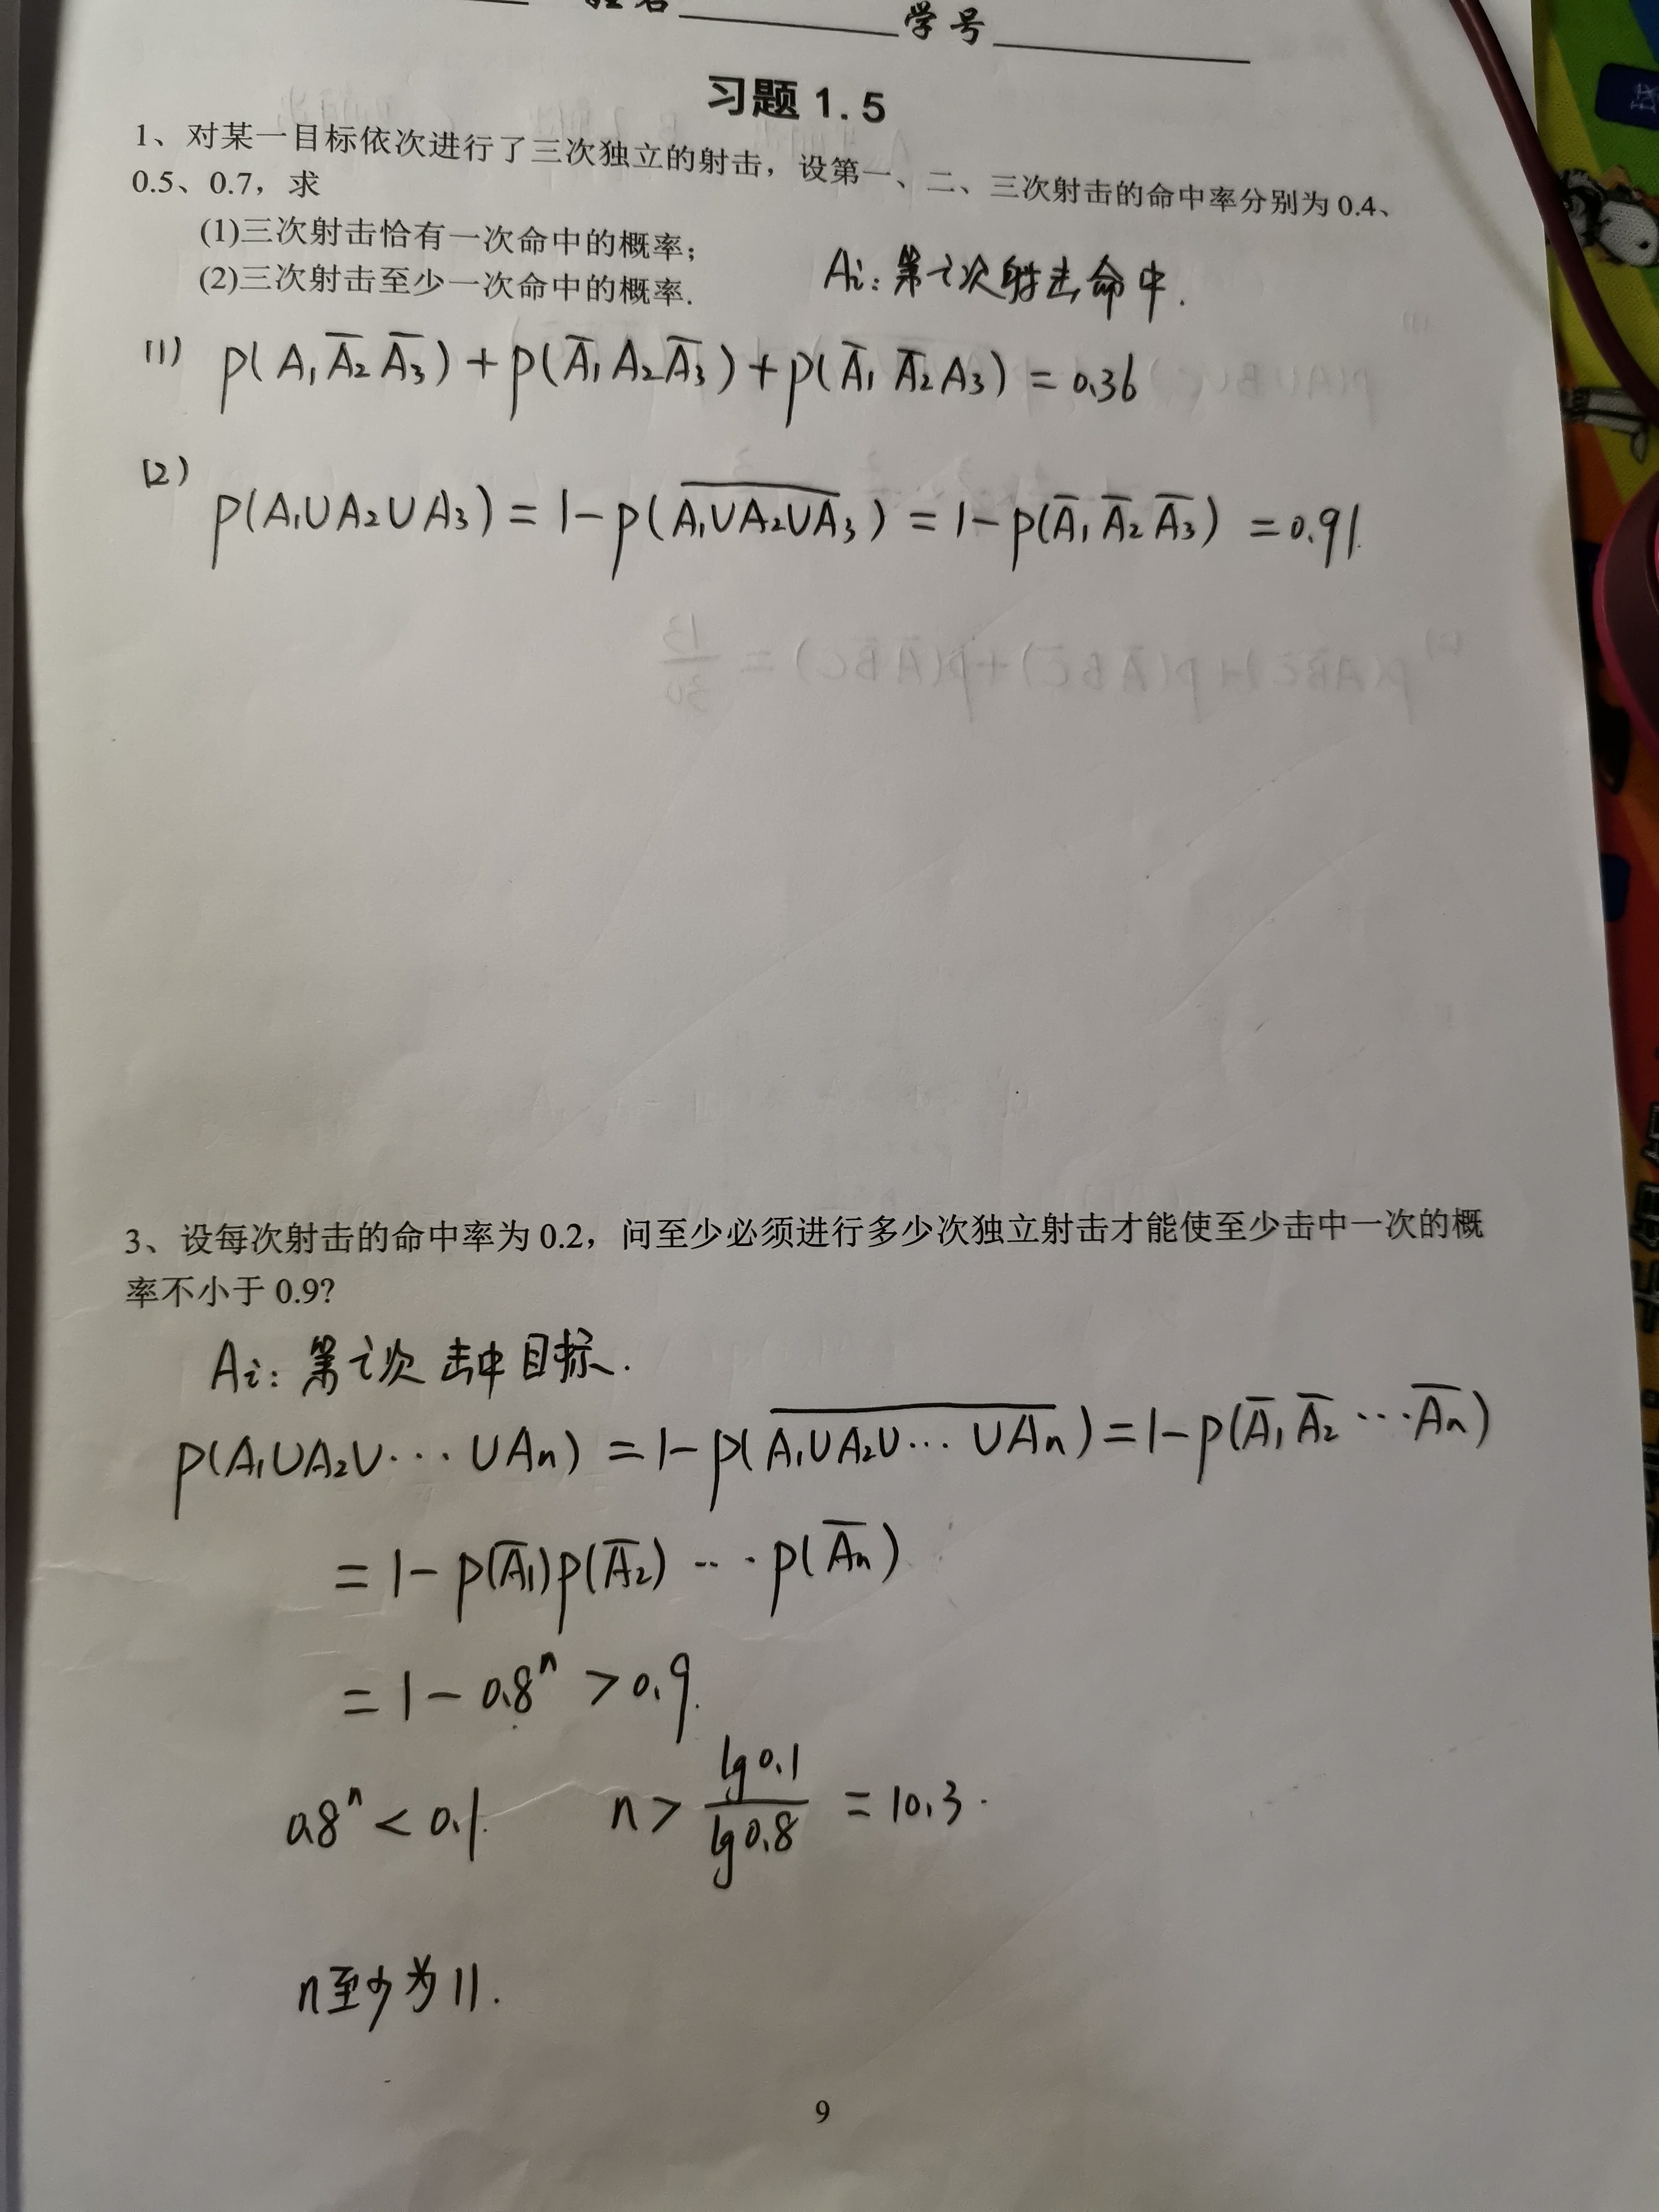 姓名 学号
习题 1.5
1、对某一目标依次进行了三次独立的射击，设第一、二、三次射击的命中率分别为 0.4、
0.5、0.7，求
(1)三次射击恰有一次命中的概率；
(2)三次射击至少一次命中的概率.
Ai: 第i次射击命中.
(1) p(A₁A̅₂A̅₃)+p(A̅₁A₂A̅₃)+p(A̅₁A̅₂A₃) = 0.36
(2) p(A₁∪A₂∪A₃) = 1-p(\overline{A₁∪A₂∪A₃}) = 1-p(A̅₁A̅₂A̅₃) = 0.91.
3、设每次射击的命中率为 0.2，问至少必须进行多少次独立射击才能使至少击中一次的概
率不小于 0.9?
Ai: 第i次击中目标.
p(A₁∪A₂∪···∪Aₙ) = 1-p(\overline{A₁∪A₂∪···∪Aₙ}) = 1-p(A̅₁A̅₂···A̅ₙ)
= 1-p(A̅₁)p(A̅₂)···p(A̅ₙ)
= 1-0.8ⁿ > 0.9.
0.8ⁿ < 0.1. n > \frac{lg0.1}{lg0.8} = 10.3.
n至少为11.
9